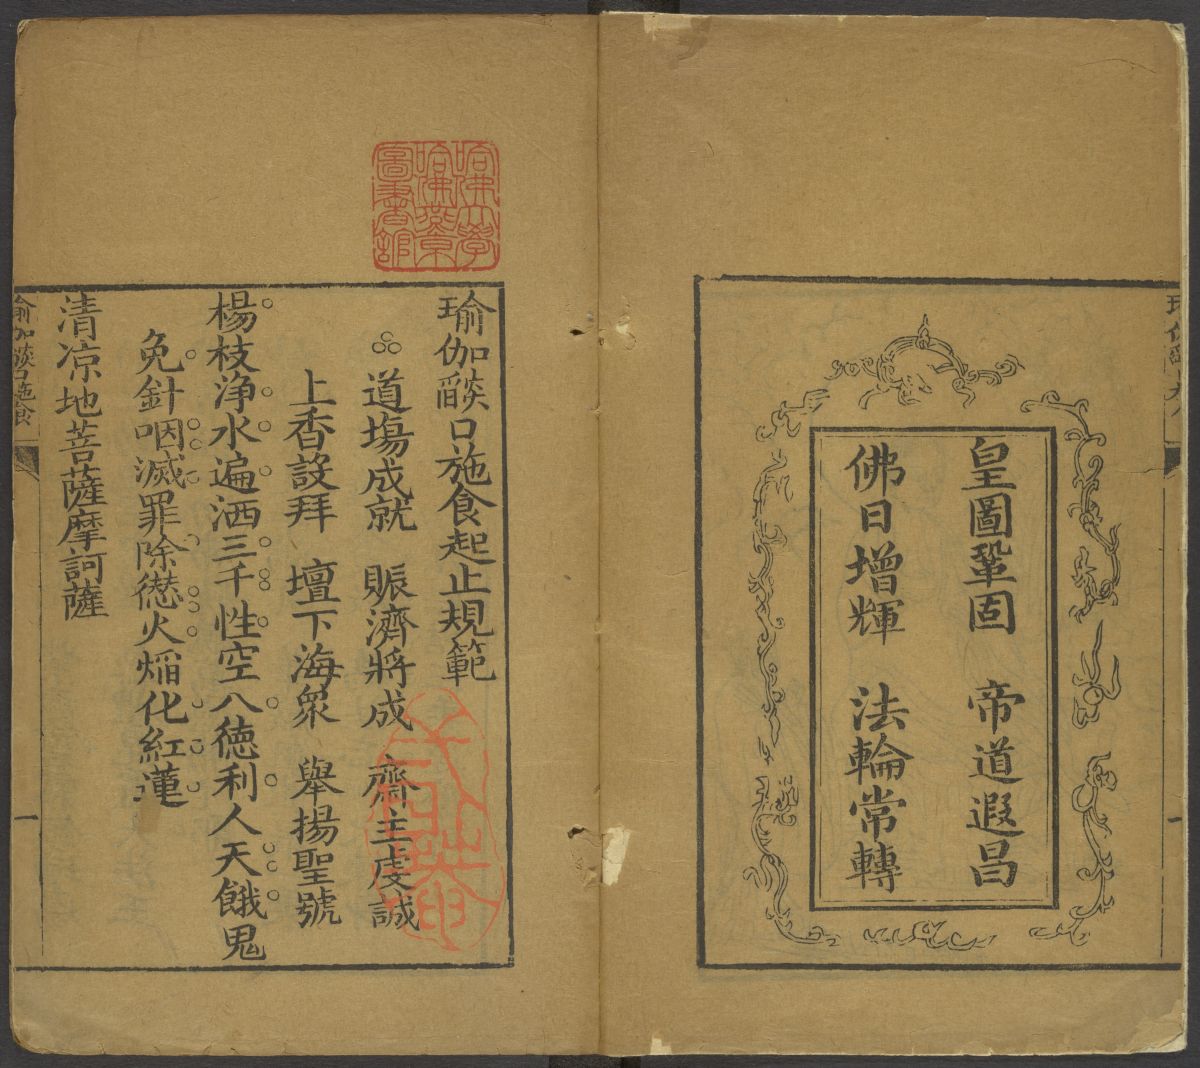 皇圖鞏固　帝道遐昌
佛日增輝　法輪常轉
哈佛大學
哈佛燕京
圖書館
瑜伽燄口施食起止規範
道場成就　賑濟將成　齋主虔誠
上香設拜　壇下海衆　舉揚聖號
楊枝浄水遍洒三千性空八德利人天餓鬼
免針咽滅罪除愆火焰化紅蓮
清凉地菩薩摩訶薩
瑜伽燄口施食
一